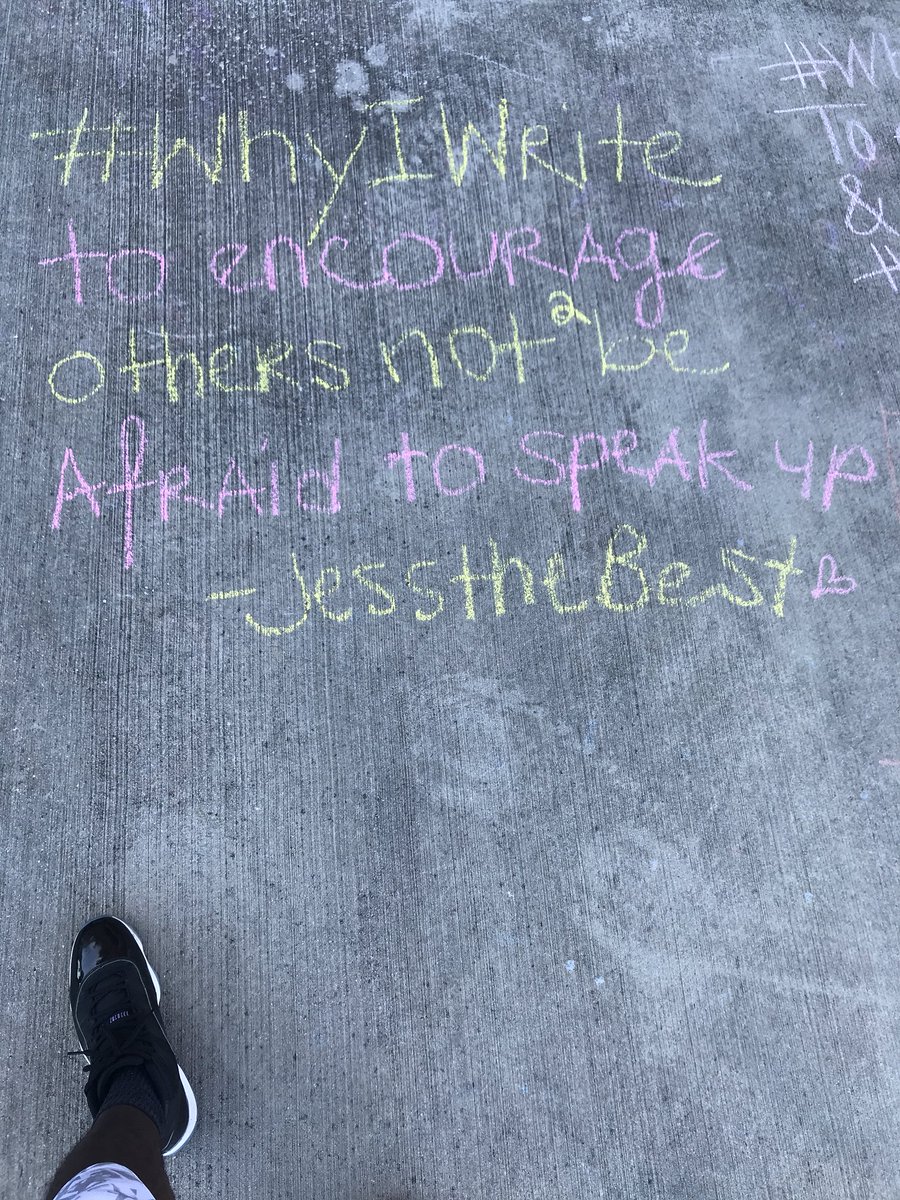 #WhyIWrite
to encourage
others not 2 be
Afraid to speak up
-JesstheBeast
#Wh
To
&